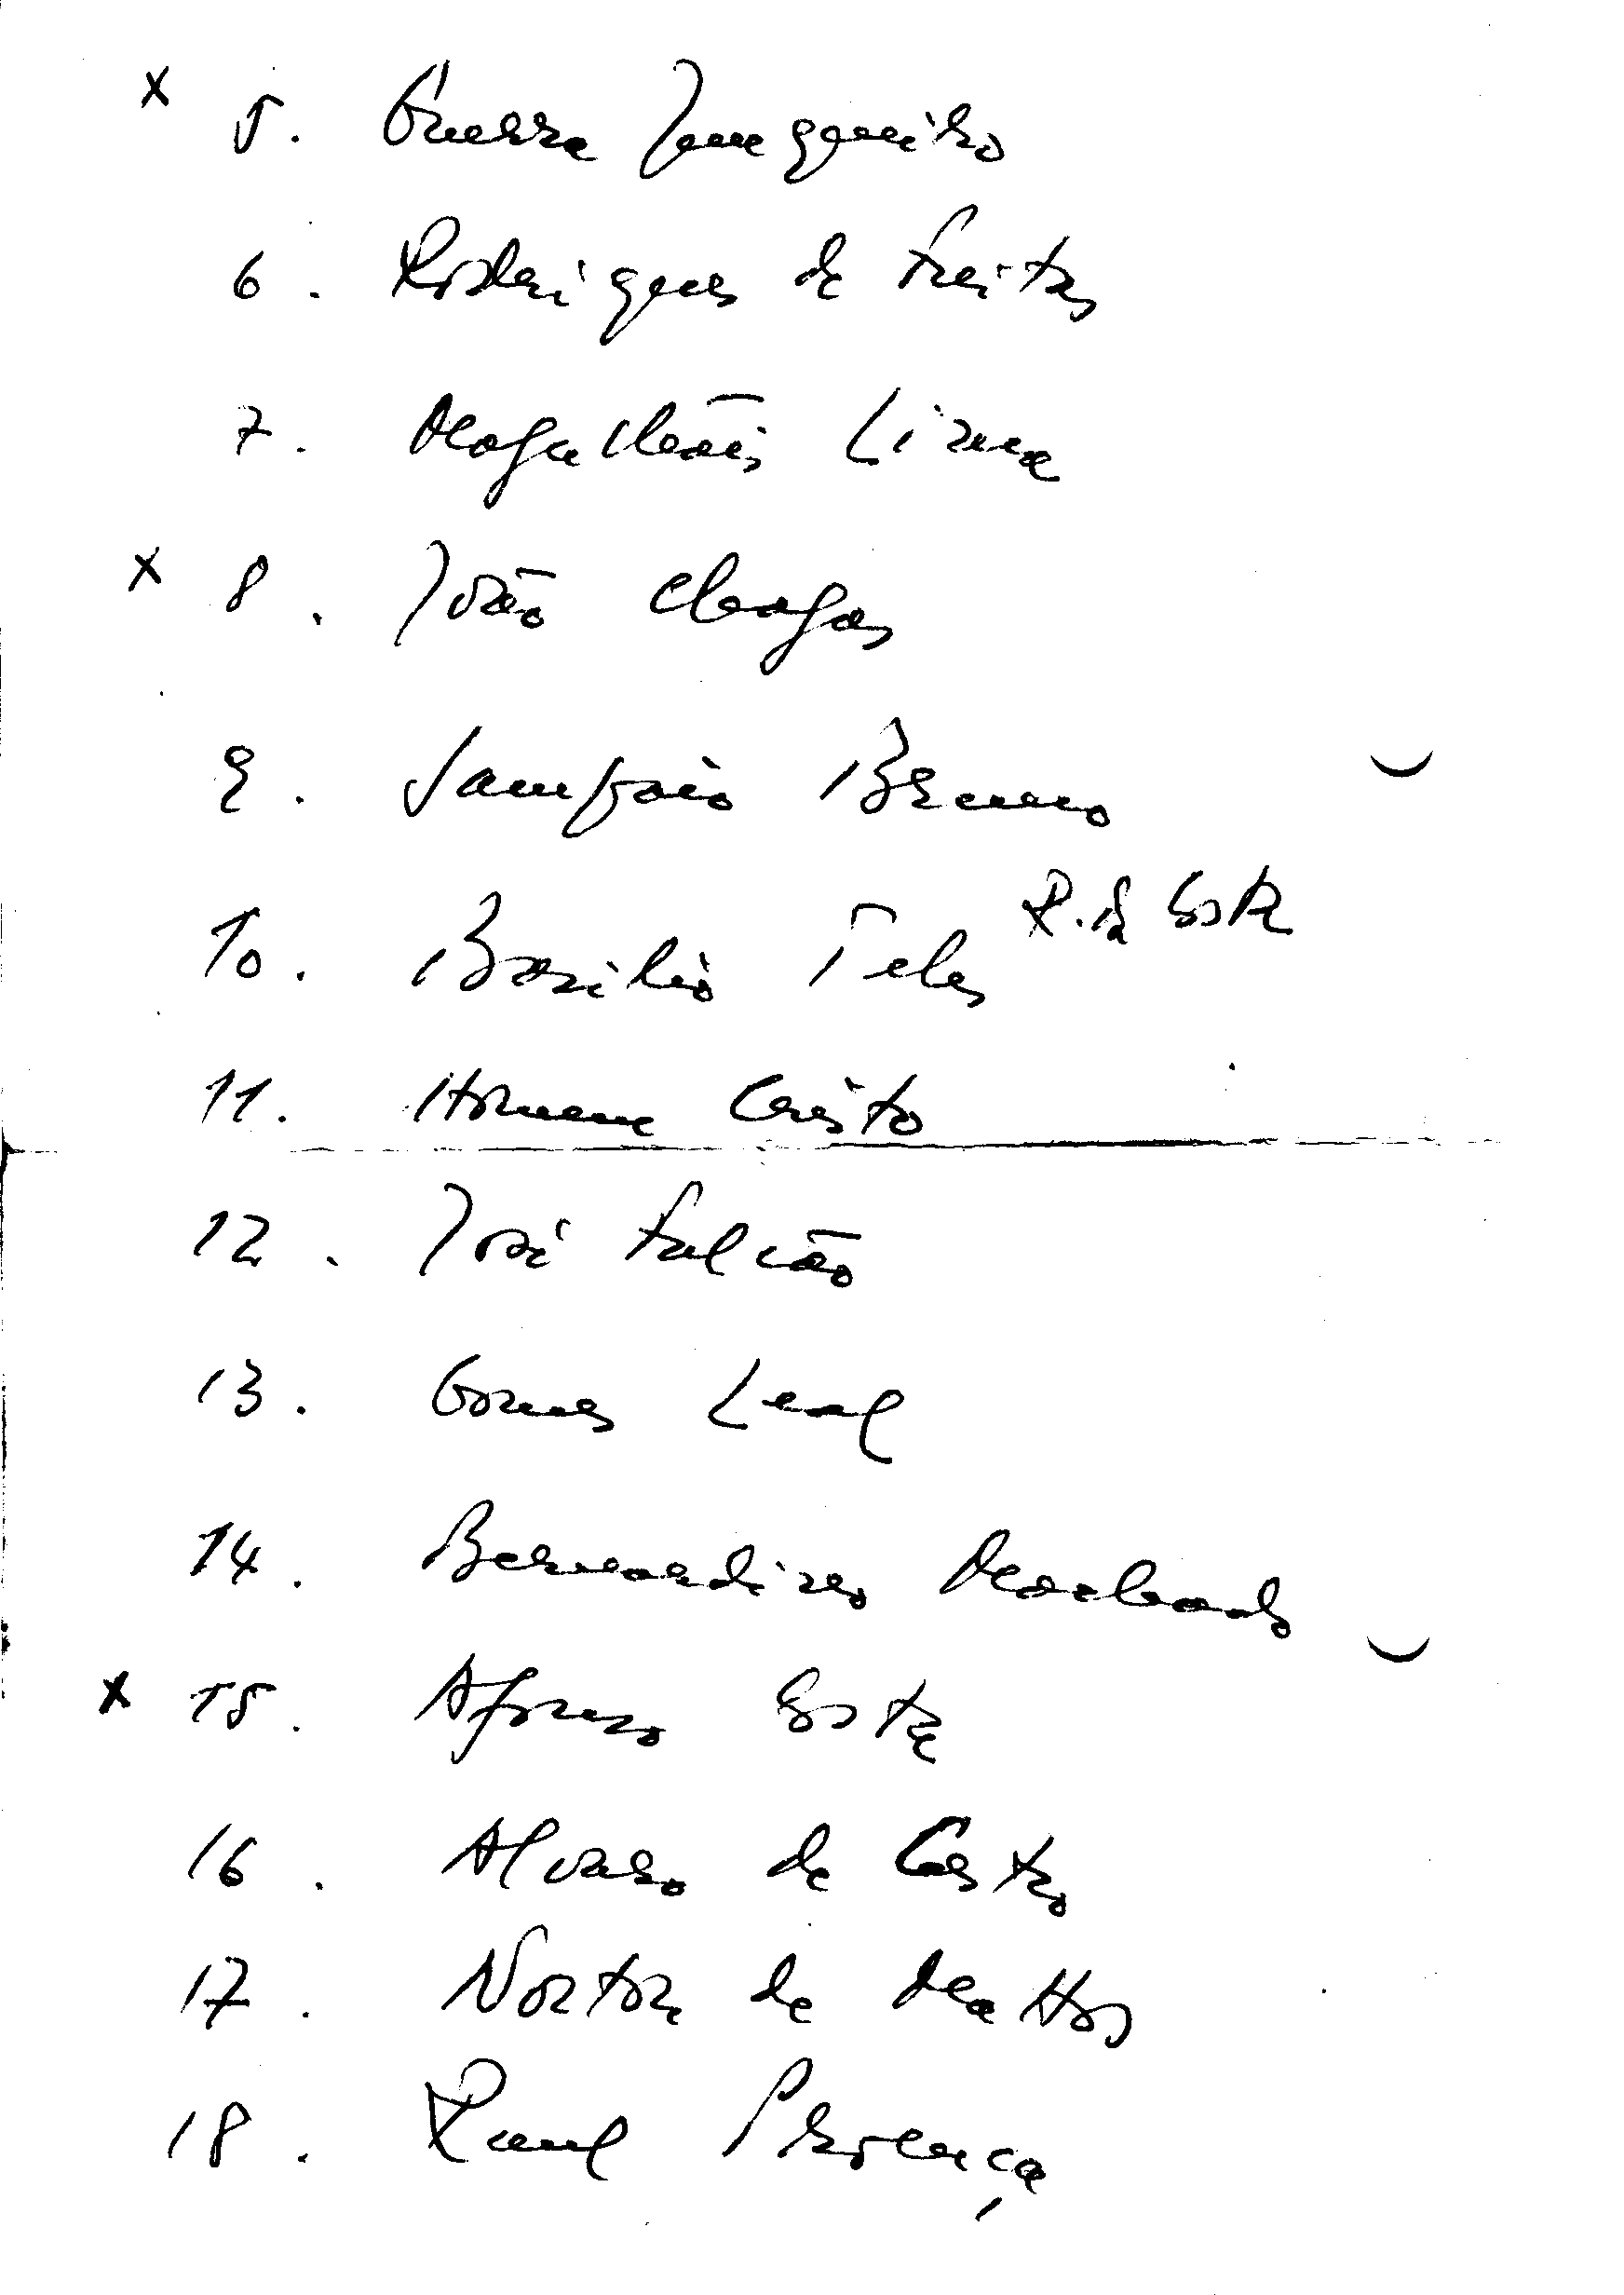 x 5. Guerra Junqueiro
6. Rodrigues de Freitas
7. Magalhães Lima
x 8. João Chagas
9. Sampaio Bruno
10. Basílio Teles R. da Costa
11. Homem Cristo
12. José Falcão
13. Gomes Leal
14. Bernardino Machado
x 15. Afonso Costa
16. Alvaro de Castro
17. Norton de Mattos
18. Raul Proença